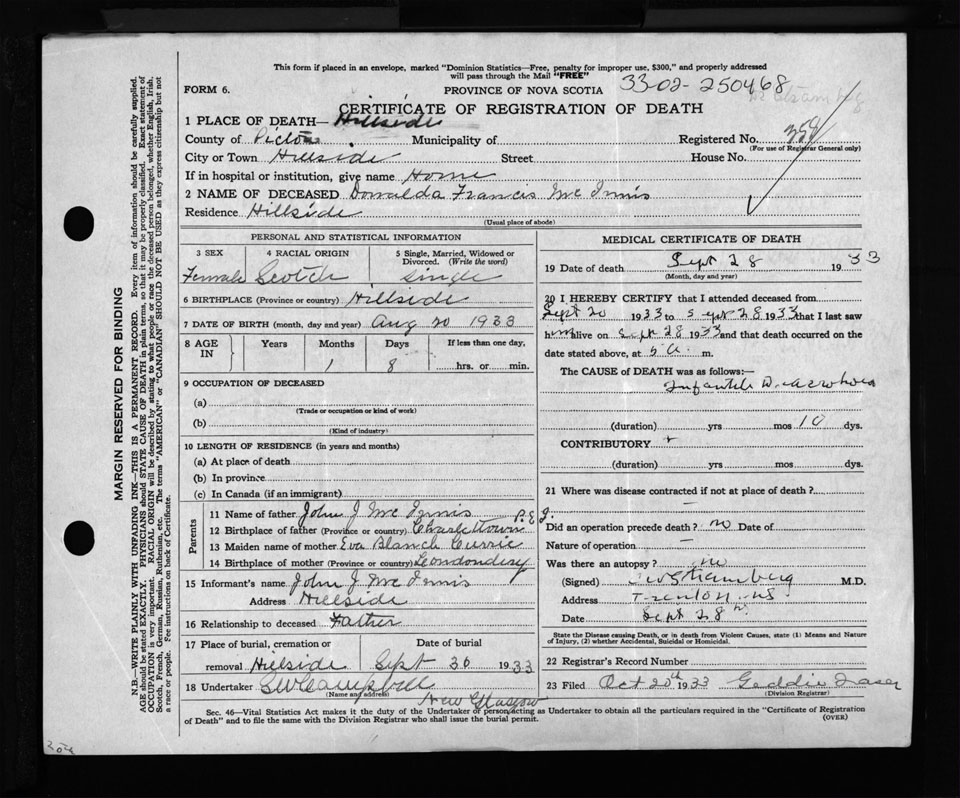 This form if placed in an envelope, marked "Dominion Statistics—Free, penalty for improper use, $300," and properly addressed
will pass through the Mail "FREE"
FORM 6.
PROVINCE OF NOVA SCOTIA
33-02-250468
CERTIFICATE OF REGISTRATION OF DEATH
1 PLACE OF DEATH— Hillside
County of Pictou Municipality of Registered No. 358
(For use of Registrar General only)
City or Town Hillside Street House No.
If in hospital or institution, give name Home
2 NAME OF DECEASED Donalda Francis Mc Innis
Residence Hillside
(Usual place of abode)
PERSONAL AND STATISTICAL INFORMATION
3 SEX 4 RACIAL ORIGIN 5 Single, Married, Widowed or Divorced. (Write the word)
Female Scotch single
6 BIRTHPLACE (Province or country) Hillside
7 DATE OF BIRTH (month, day and year) Aug 20 1933
8 AGE IN Years Months Days If less than one day,
1 8 hrs. or min.
9 OCCUPATION OF DECEASED
(a)
(Trade or occupation or kind of work)
(b)
(Kind of industry)
10 LENGTH OF RESIDENCE (in years and months)
(a) At place of death
(b) In province
(c) In Canada (if an immigrant)
Parents
11 Name of father John J Mc Innis
12 Birthplace of father (Province or country) Charlettown P.E.I.
13 Maiden name of mother Eva Blanch Currie
14 Birthplace of mother (Province or country) Londondery
15 Informant's name John J Mc Innis
Address Hillside
16 Relationship to deceased Father
17 Place of burial, cremation or Date of burial
removal Hillside Sept 30 1933
18 Undertaker G W Campbell
(Name and address)
New Glasgow
MEDICAL CERTIFICATE OF DEATH
19 Date of death Sept 28 1933
(Month, day and year)
20 I HEREBY CERTIFY that I attended deceased from
Sept 20 1933 to Sept 28 1933 that I last saw
him alive on Sept 28 1933 and that death occurred on the
date stated above, at 5 a. m.
The CAUSE of DEATH was as follows:—
Infantile Diarrhoea
(duration) yrs mos 10 dys.
CONTRIBUTORY
(duration) yrs mos dys.
21 Where was disease contracted if not at place of death? —
Did an operation precede death? no Date of
Nature of operation —
Was there an autopsy? no
(Signed) M.D.
Address Trenton NS
Date Sept 28
State the Disease causing Death, or in death from Violent Causes, state (1) Means and Nature
of Injury, (2) whether Accidental, Suicidal or Homicidal.
22 Registrar's Record Number
23 Filed Oct 20th 1933 Geddie Fraser
(Division Registrar)
Sec. 46—Vital Statistics Act makes it the duty of the Undertaker or person acting as Undertaker to obtain all the particulars required in the "Certificate of Registration
of Death" and to file the same with the Division Registrar who shall issue the burial permit.
(OVER)
MARGIN RESERVED FOR BINDING
N.B.—WRITE PLAINLY WITH UNFADING INK—THIS IS A PERMANENT RECORD. Every item of information should be carefully supplied.
AGE should be stated EXACTLY. PHYSICIANS should STATE CAUSE OF DEATH in plain terms, so that it may be properly classified. Exact statement of
OCCUPATION is very important. RACIAL ORIGIN will be described by stating to what people or race the deceased person belonged, whether English, Irish,
Scotch, French, German, Russian, Ruthenian, etc. The terms "AMERICAN" or "CANADIAN" SHOULD NOT BE USED as they express citizenship but not
a race or people. See instructions on back of Certificate.